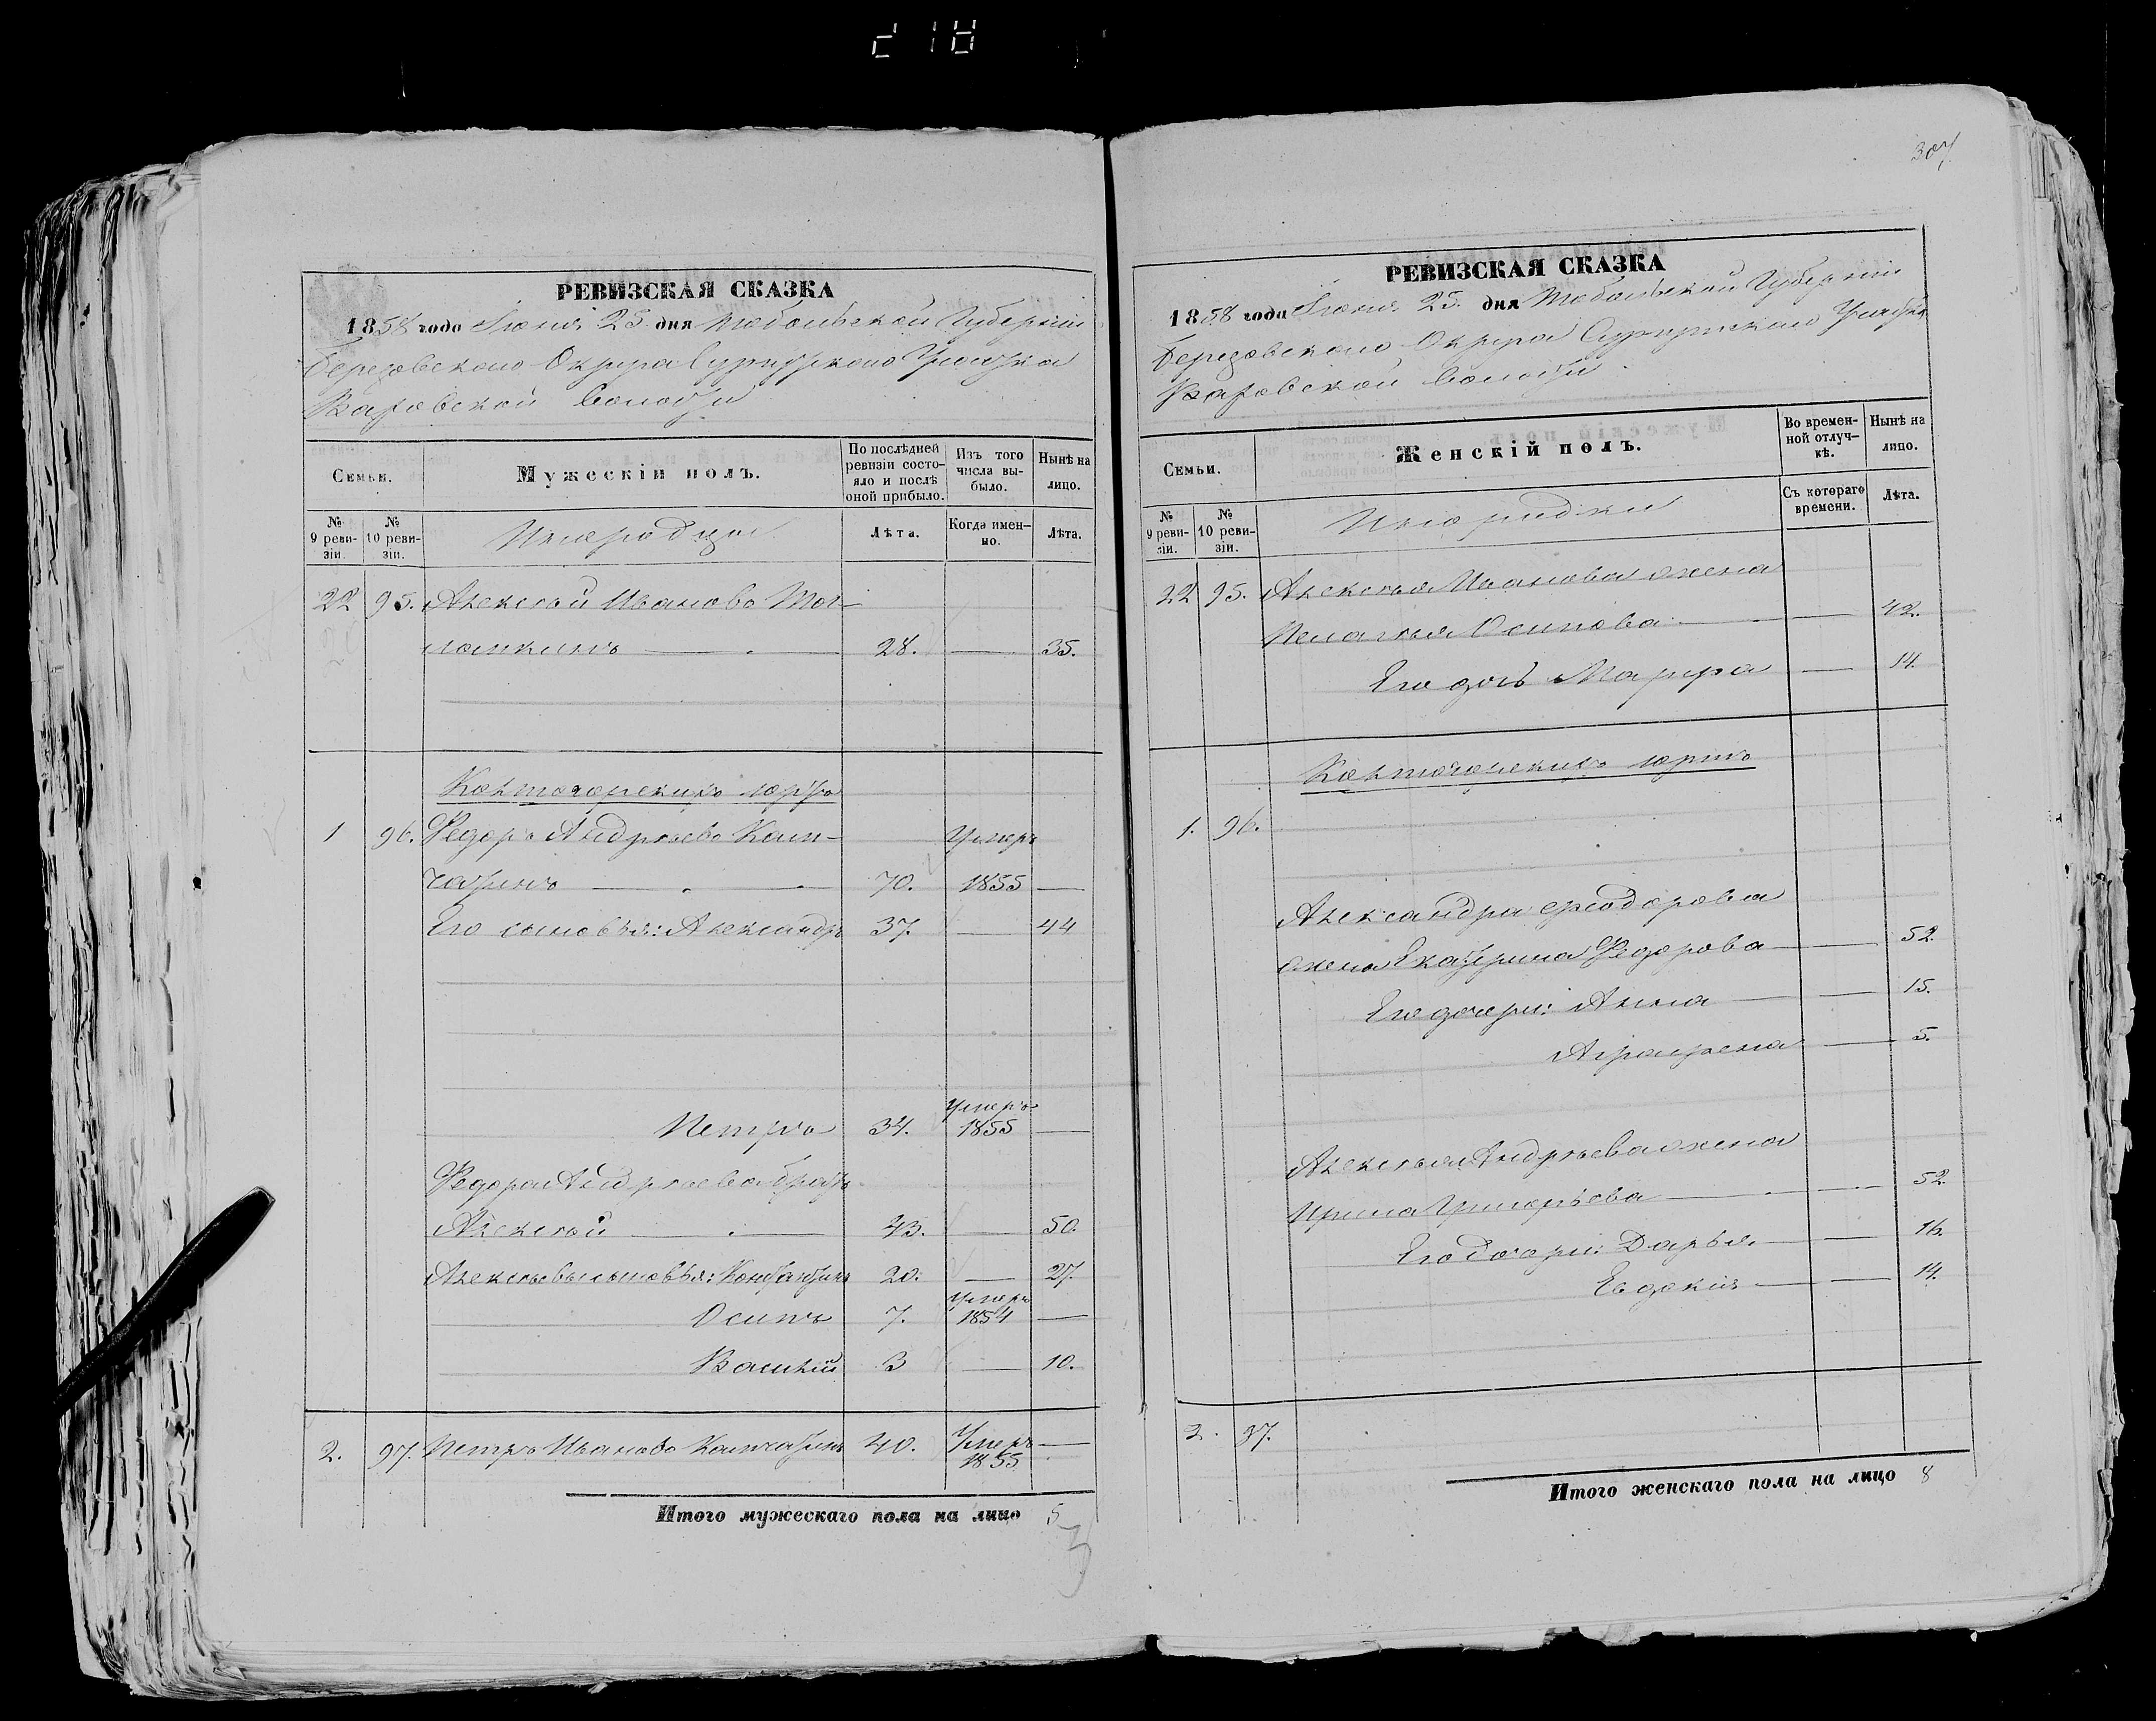 218
307
РЕВИЗСКАЯ СКАЗКА
1858 года Іюня 25 дня Тобольской Губерніи
Березовскаго Округа Сургутскаго Участка
Волости
Семьи.
Мужескій полъ.
По послѣдней ревизіи состояло и послѣ оной прибыло.
Изъ того числа выбыло.
Нынѣ на лицо.
№ 9 ревизіи.
№ 10 ревизіи.
Инородцы
Лѣта.
Когда именно.
Лѣта.
22 95. Алексѣй Ивановъ
28. — 35.
юртъ
1 96. Федоръ Андреевъ Кап- Умеръ
70. 1855 —
Его сыновья: Александръ 37. — 44
Петръ 34. Умеръ 1855 —
Федора Андреева братъ
Алексѣй — 43. — 50.
Алексѣевы сыновья: Константинъ 20. — 27.
Осипъ 7. Умеръ 1854 —
Василій 3 — 10.
2. 97. Петръ Ивановъ 40. Умеръ 1855 —
Итого мужескаго пола на лицо 5
3
РЕВИЗСКАЯ СКАЗКА
1858 года Іюня 25 дня Тобольской Губерніи
Березовскаго Округа Сургутскаго Участка
Волости
Семьи.
Женскій полъ.
Во временной отлучкѣ.
Нынѣ на лицо.
№ 9 ревизіи.
№ 10 ревизіи.
Инородки
Съ котораго времени.
Лѣта.
22 95. Алексѣя Иванова жена
Пелагея Осипова — 42.
Его дочь Марфа — 14.
юртъ
1. 96.
Александра Федорова
жена Екатерина Федорова — 52.
Его дочери: Анна — 15.
Аграфена — 5.
Алексѣя Андреева жена
Ирина Григорьева — 52.
Его дочери: Дарья — 16.
Евдокія — 14.
2. 97.
Итого женскаго пола на лицо 8